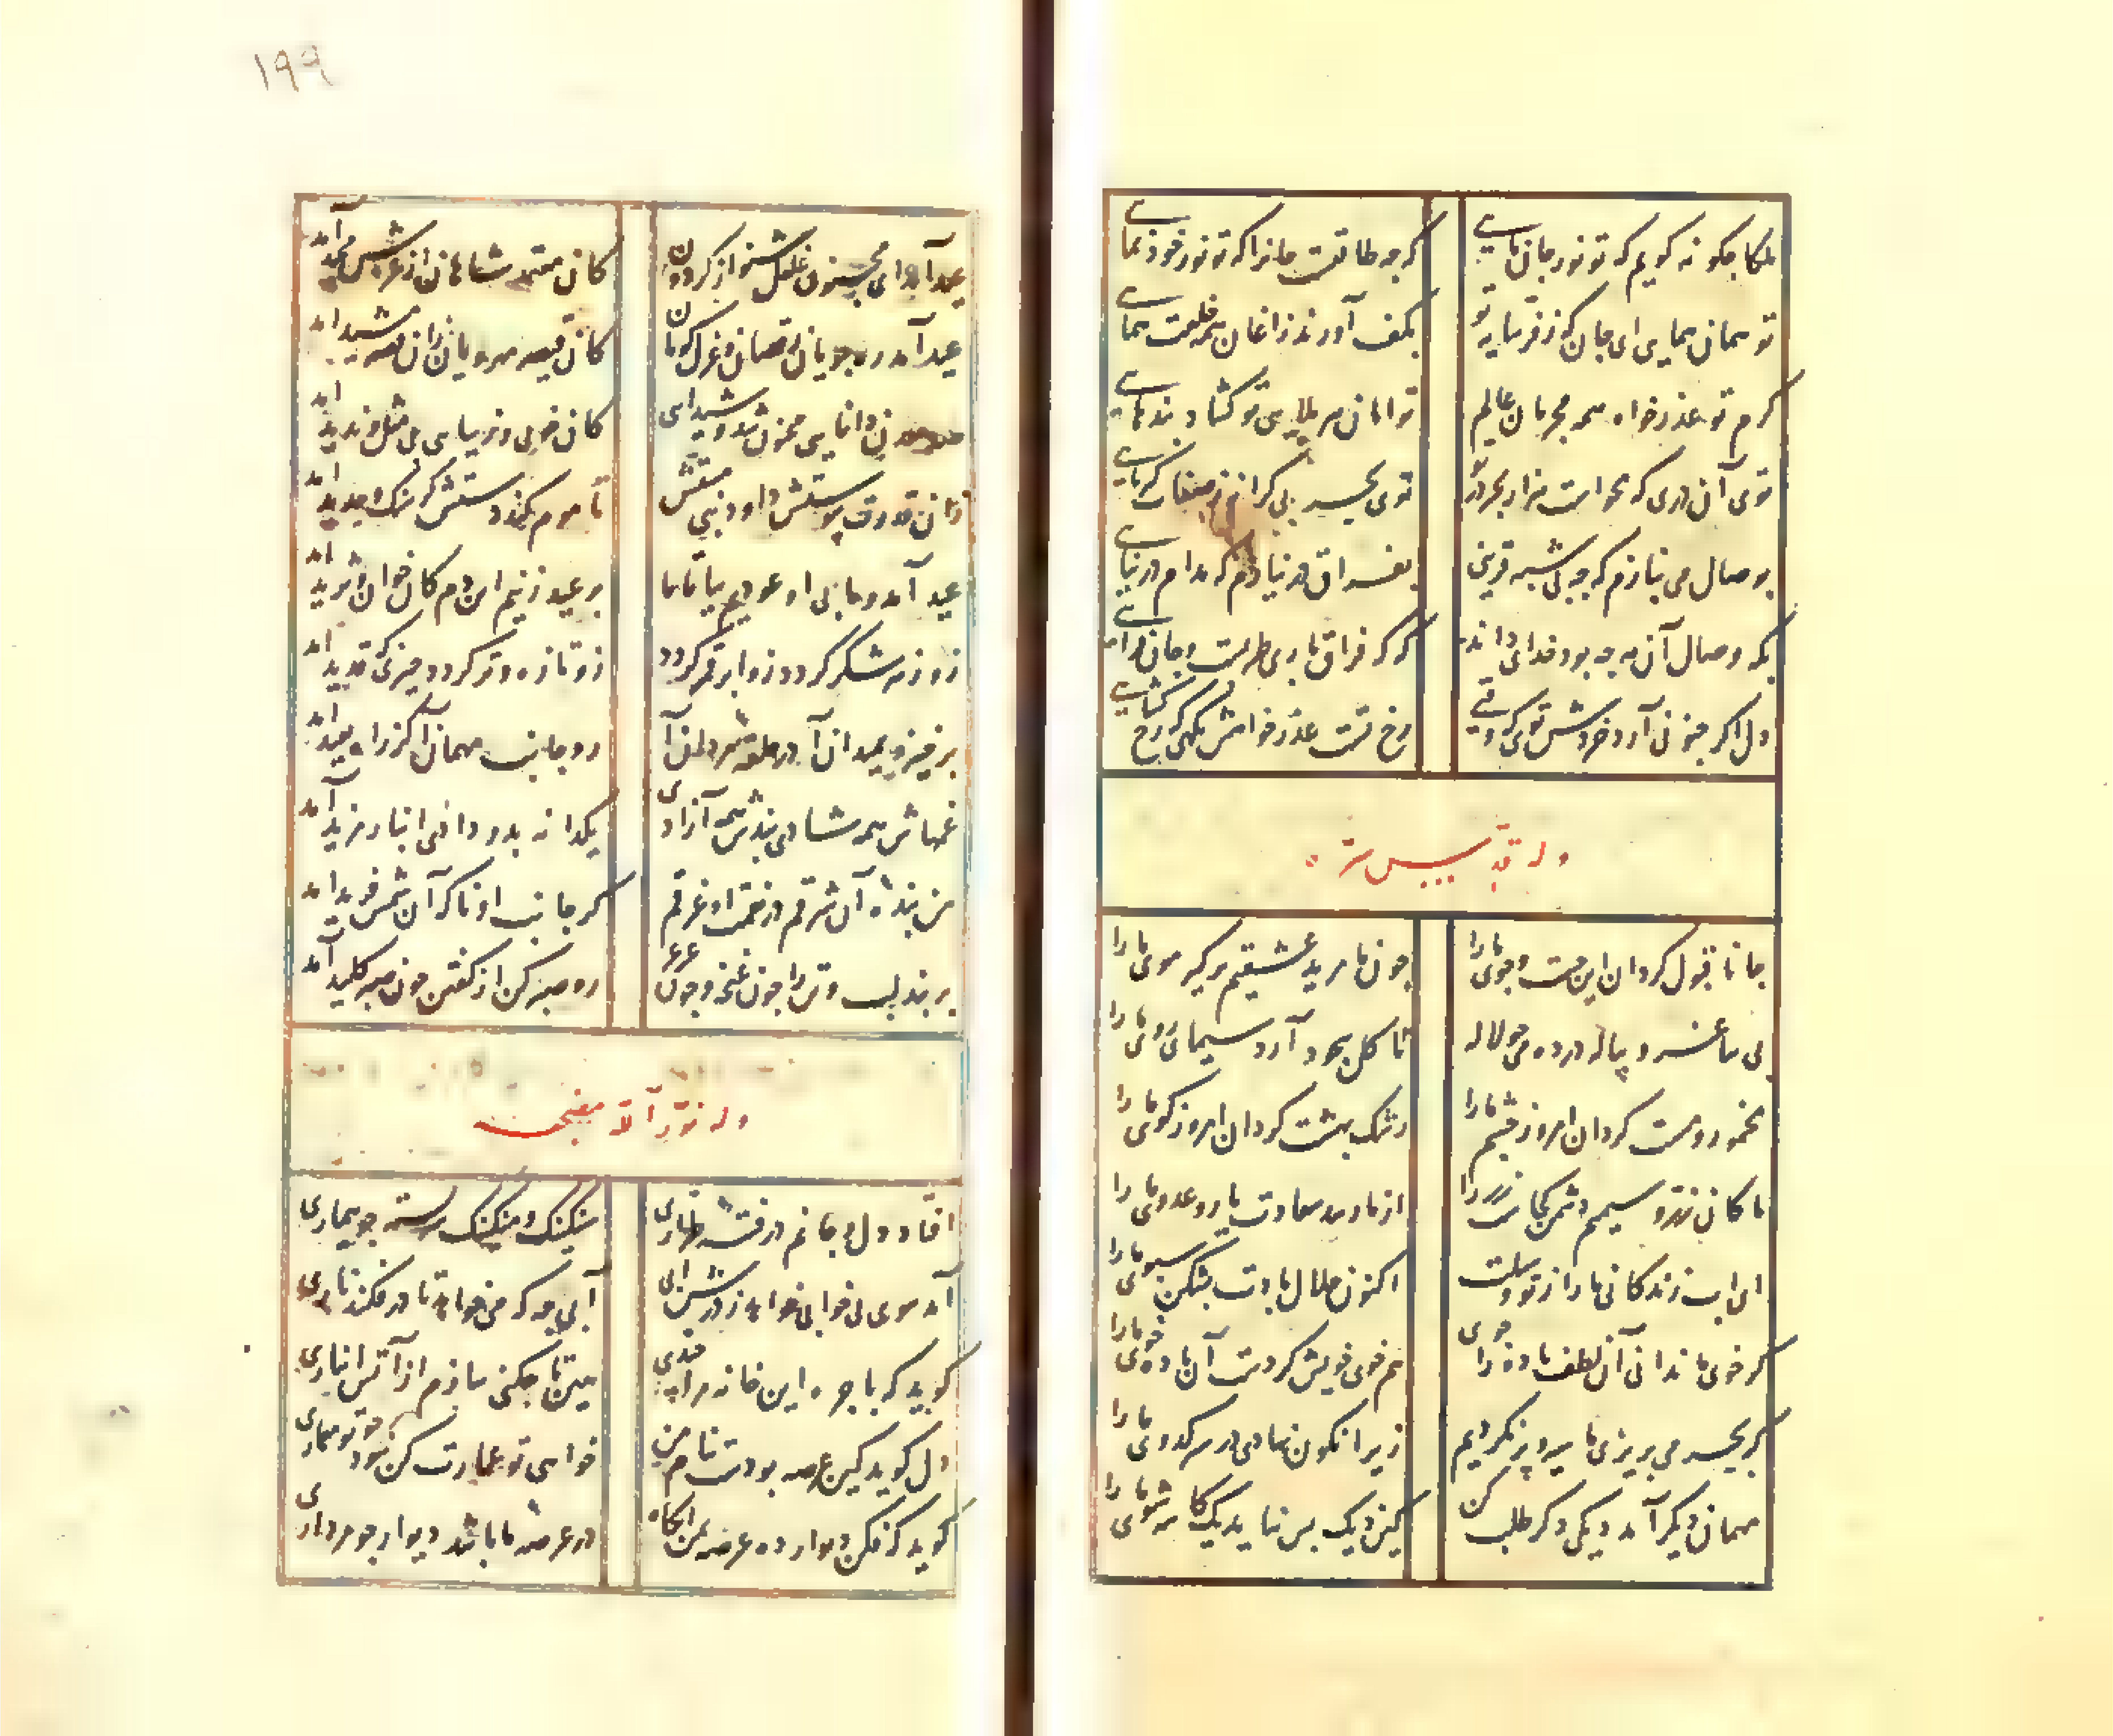 ملکا چکونه کویم که تو نور جان مایی
که چه طاقتست جانرا که تو نور خود نمایی
تو همان همایی ای جان که ز فر سایه تو
بکف آورند زاغان همه خلعت همایی
کرم تو عذر خواه همه مجرمان عالم
تو امان هر بلایی تو کشاد بندهایی
توی آن دری که بحر است هزار بحر در
توی بحر بی کرانه ز صفات کبریایی
بوصال می بنازم که چه بی شبه قرینی
بفراق در نیازم که مدام در نیایی
بکه وصال آن مه چه بود خدای داند
که که فراق باری طربست و جان فزایی
دل اکر جنون آرد خردش توی که رفتی
رخ تست عذر خواهش بکهی که رخ کشایی
وله قدس سره
جانا قبول کردان این جست و جوی ما را
چون ما مرید عشقیم بر کیر موی ما را
بی ساغر و پیاله در ده می چو لاله
تا کل سجود آرد سیمای روی ما را
مخمور و مست کردان امروز چشم ما را
رشک بهشت کردان امروز کوی ما را
ما کان زر و سیمیم دشمن کجاست زر را
از ما رسد سعادت یار و عدوی ما را
ای اب زندکانی ما را ز تو سلت
اکنون حلال بادت بشکن سبوی ما را
کر خوی ما ندانی آن لطف باده را جوی
هم خوی خویش کردست آن باده خوی ما را
کر بحر می بریزی ما سیر و پر نکردیم
زیرا نکون نهادی در سر کدوی ما را
مهمان دیکر آمد دیکی دکر طلب کن
کین دیک بس نیاید یک کاسه شوی ما را
۱۹۹
عید آمد ای مجنون غلغل شنو از کردون
کان معتمد شاهان از عرش مجید آمد
عید آمد ره جویان رقصان و غزل کویان
کان قیصر مه رویان زان قصر مشید آمد
دانایی مجنون شد و شیدایی
کان خوبی و زیبایی بی مثل و ندید آمد
زان قدرت پیوستش داود نبی مستش
تا موم کند دستش کر سنک و حدید آمد
عید آمد و ما بی او عودیم بیا تا ما
بر عید زنیم این دم کان خوان و ثرید آمد
زو زهر شکر کردد زو ابر قمر کردد
زو تازه و تر کردد هرجا که قدید آمد
بر خیز و بمیدان آ در حلقه مردان آ
رو جانب مهمان آ کز راه بعید آمد
غمهاش همه شادی بندش همه آزادی
یکدانه بدو دادی انبار مزید آمد
من بنده آن شرقم در نعمت او غرقم
کر جانب او تا کر آن شمس فرید آمد
بر بند لب و تن زن چون غنچه و چون عرعر
رو صبر کن از کفتن چون صبر کلید آمد
وله نور الله مضجعه
افتاد دل و جانم در فتنه طراری
سنکینک و منکینک سر بسته چو بیماری
آمد سوی بی خوابی خواهد ز درش ابی
آبی چه که می خواهد تا در فکند ناری
کوید که باجره این خانه مرا چندی
هین تا چکنی سازم از آتش انباری
دل کوید کین عرصه بودست تا هم من
خواهی تو عمارت کن نبود چو تو معماری
کوید کز فکن دیوار ده عرصه بمن آنکاه
در عرصه ما باشد دیوار چو مرداری